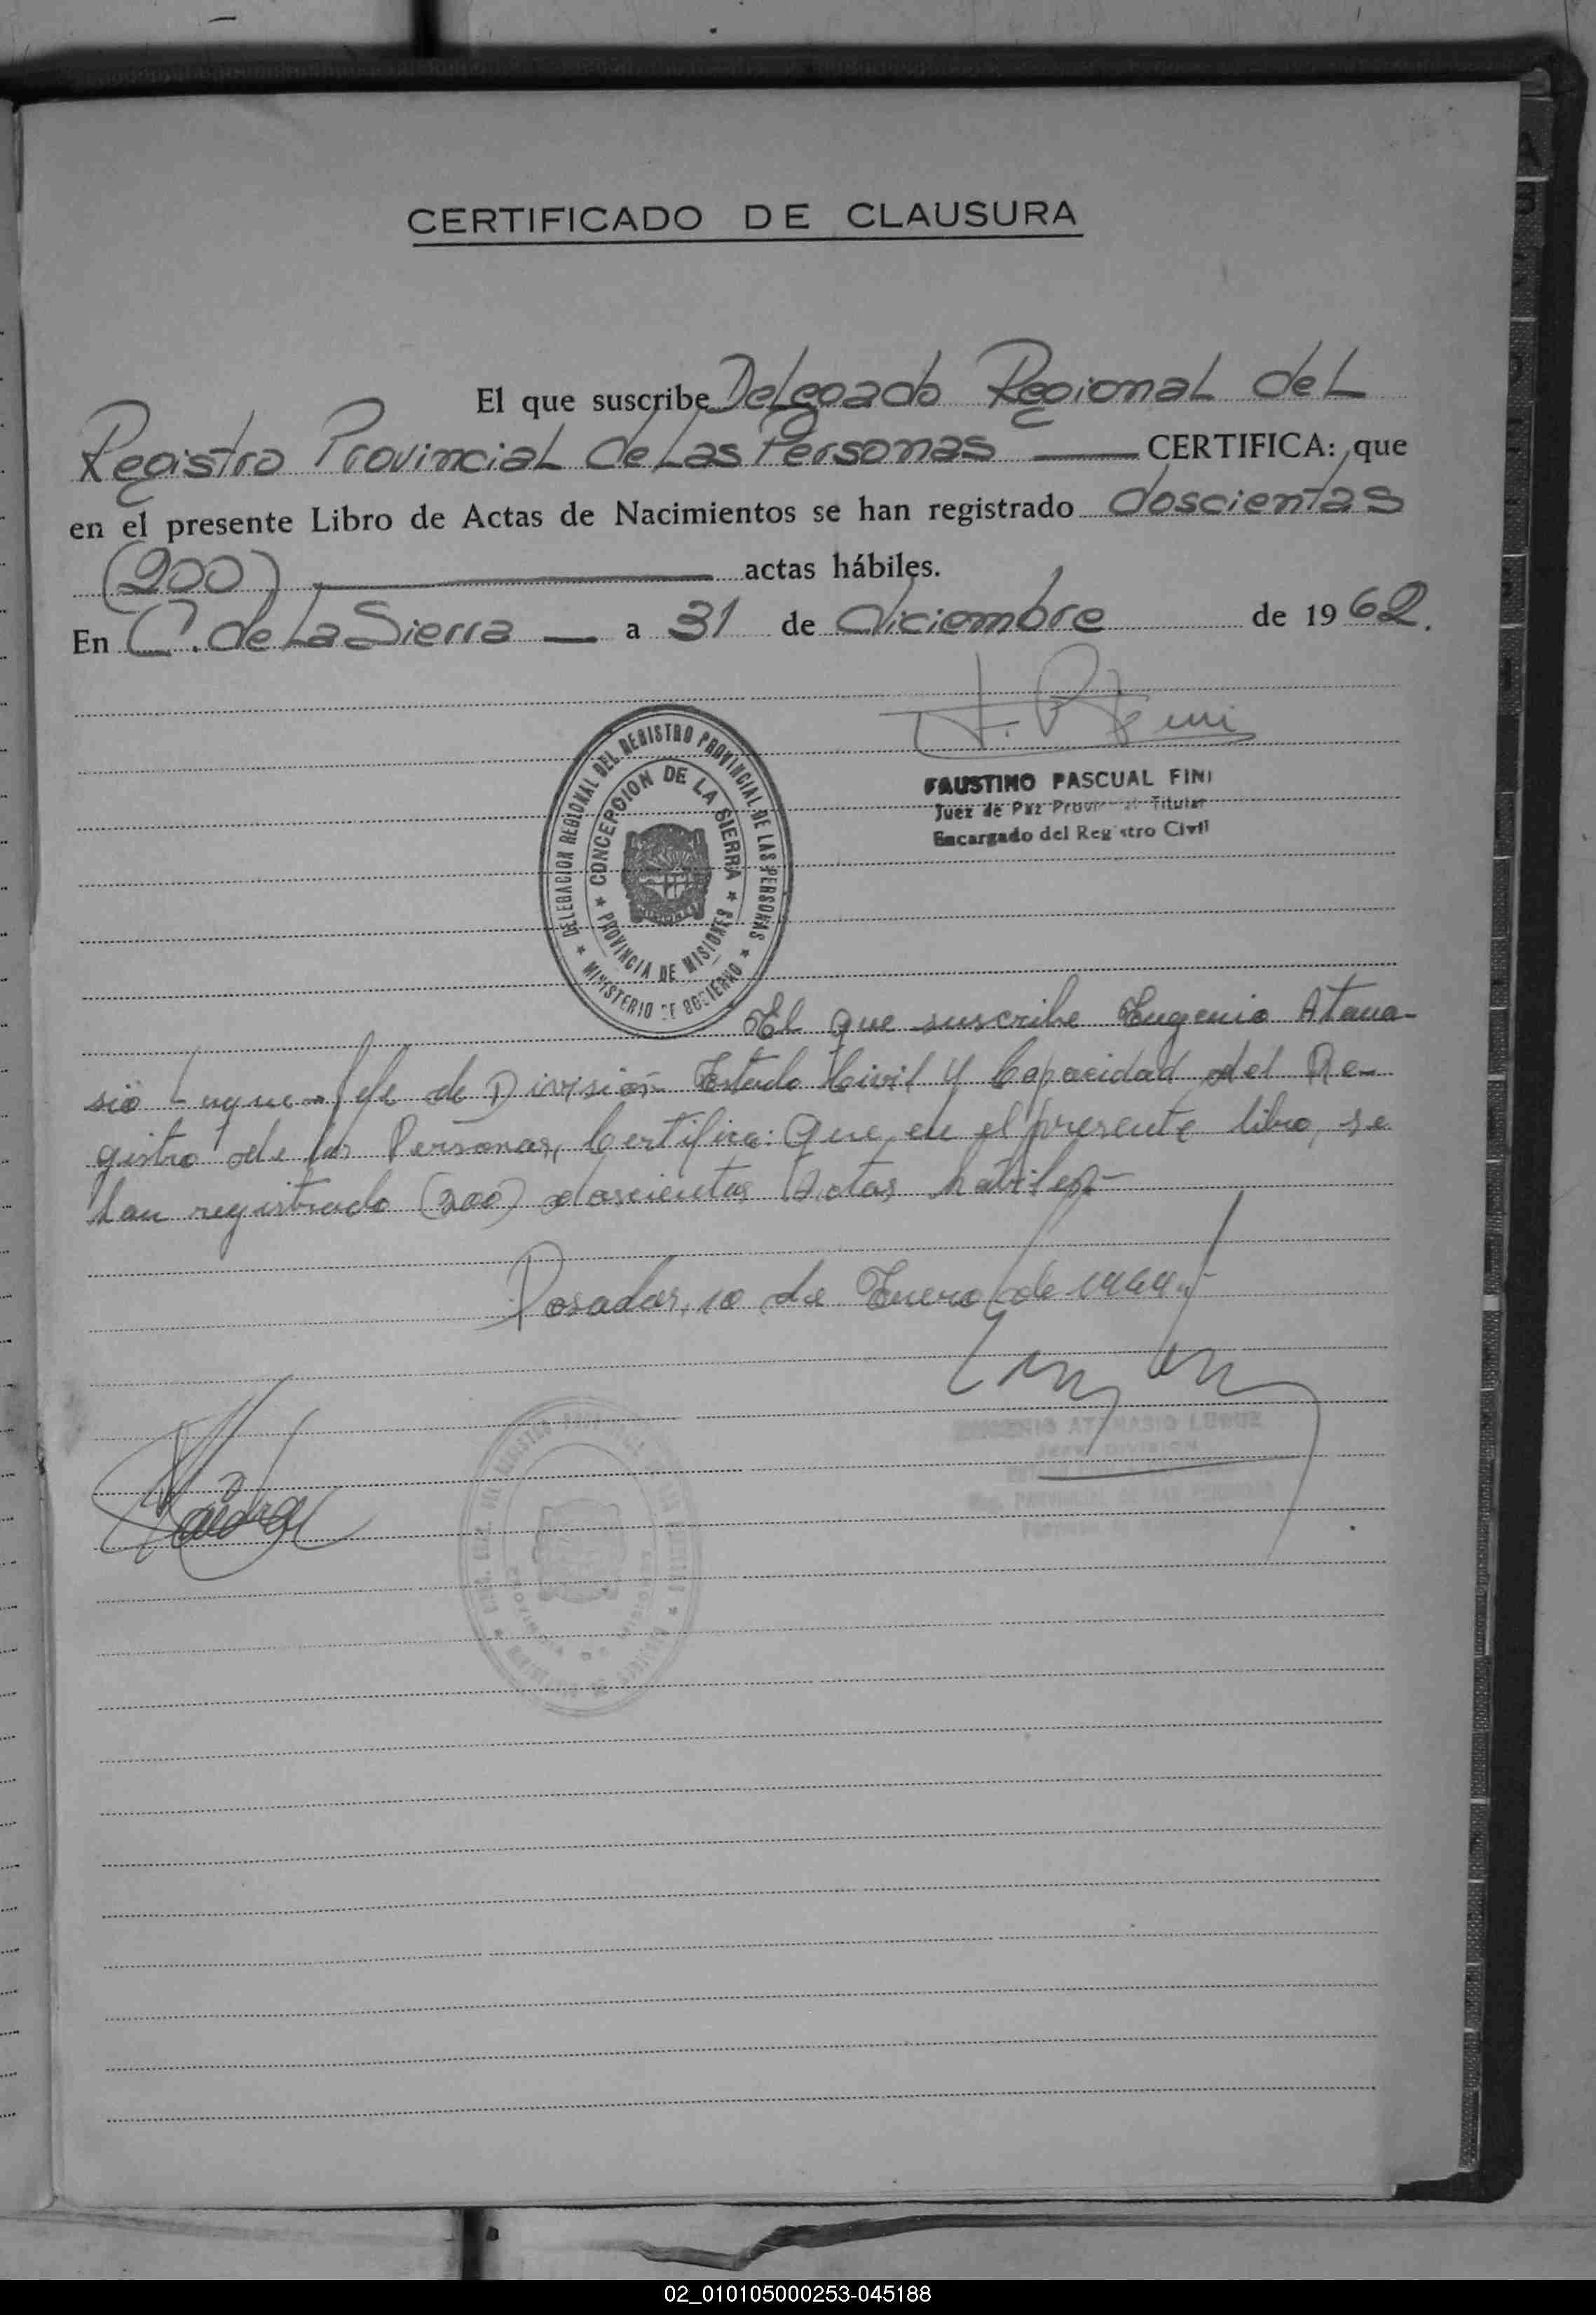 CERTIFICADO DE CLAUSURA
El que suscribe Delegado Regional del
Registro Provincial de Las Personas — CERTIFICA: que
en el presente Libro de Actas de Nacimientos se han registrado doscientas
(200) — actas hábiles.
En C. de La Sierra — a 31 de diciembre de 1962.
FAUSTINO PASCUAL FINI
Juez de Paz Provincial Titular
Encargado del Registro Civil
DELEGACION REGIONAL DEL REGISTRO PROVINCIAL DE LAS PERSONAS
MINISTERIO DE GOBIERNO
CONCEPCION DE LA SIERRA
PROVINCIA DE MISIONES
El que suscribe Eugenio Atana-
sio Luque Jefe de División Estado Civil y Capacidad del Re-
gistro de las Personas, Certifica: Que, en el presente libro, se
han registrado (200) doscientas Actas habiles
Posadas, 10 de Enero de 1964
EUGENIO ATANASIO LUQUE
JEFE DIVISION
02_010105000253-045188